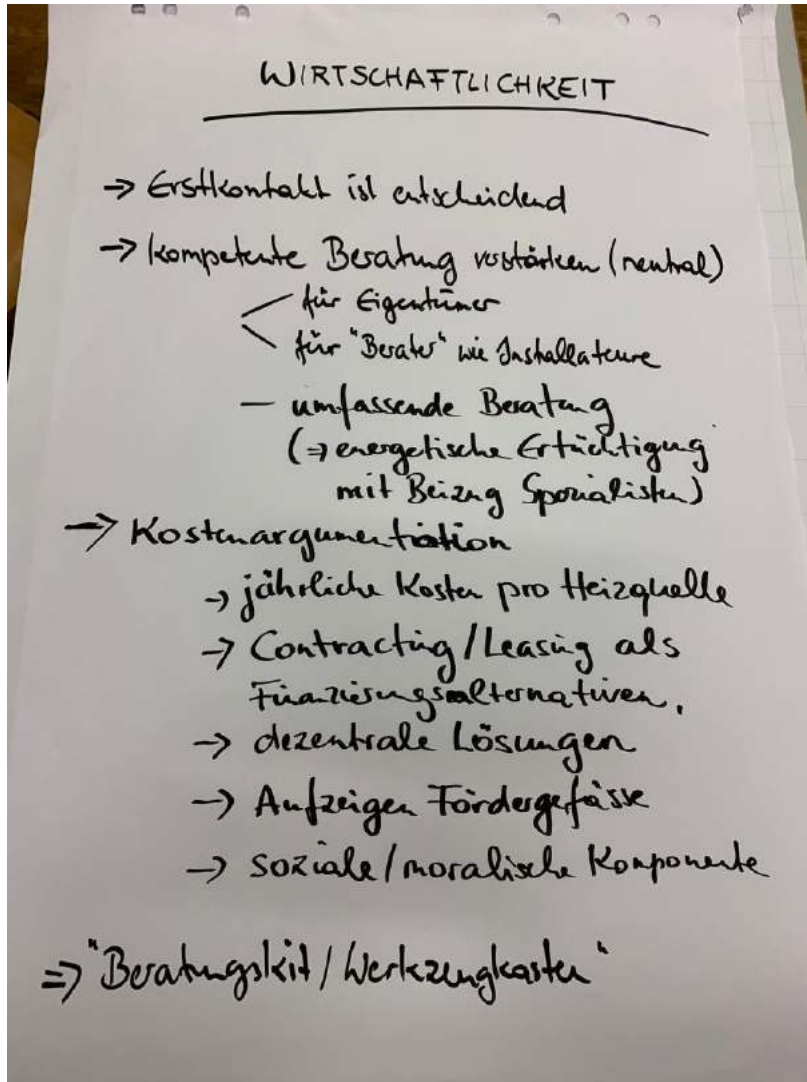 WIRTSCHAFTLICHKEIT
→ Erstkontakt ist entscheidend
→ kompetente Beratung verstärken (neutral)
für Eigentümer
für "Berater" wie Installateure
— umfassende Beratung
(⇒ energetische Ertüchtigung
mit Beizug Spezialisten)
→ Kostenargumentation
→ jährliche Kosten pro Heizquelle
→ Contracting/Leasing als
Finanzierungsalternativen.
→ dezentrale Lösungen
→ Aufzeigen Fördergefässe
→ soziale/moralische Komponente
⇒ "Beratungskit/Werkzeugkasten"